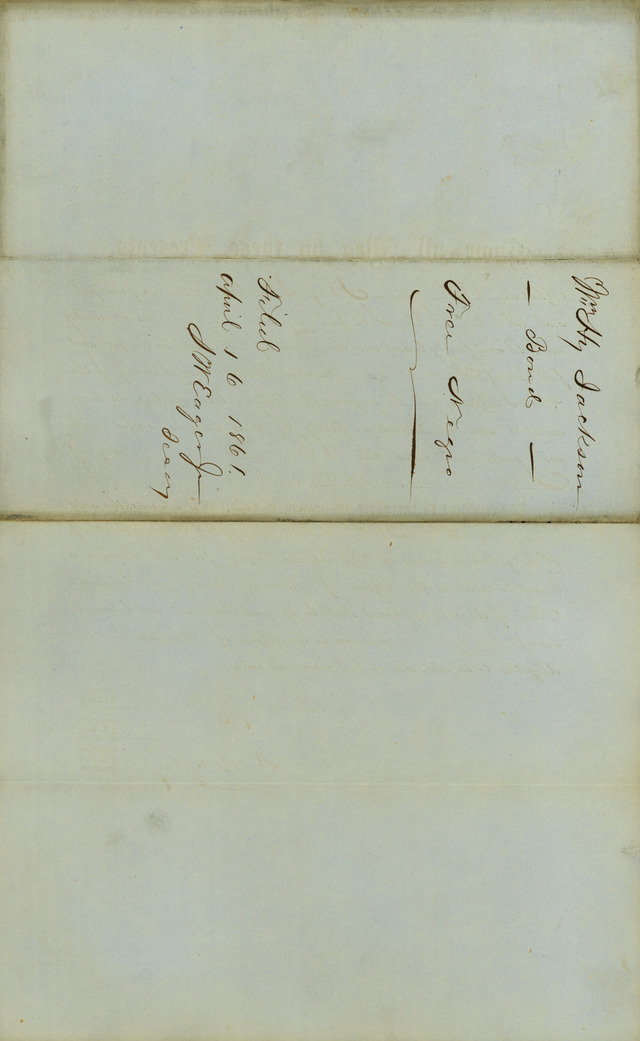 Wm Hy Jackson
— Bond —
Free Negro
Filed
April 16 1861.
S W Eager Jr